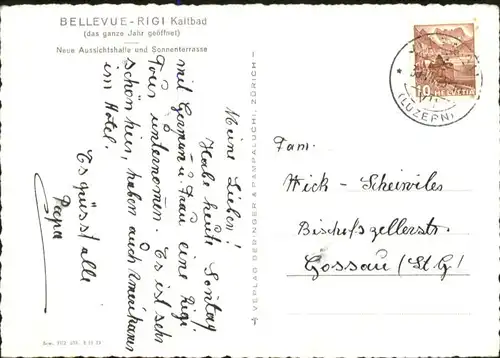 BELLEVUE-RIGI Kaltbad
(das ganze Jahr geöffnet)
Neue Aussichtshalle und Sonnenterrasse
Meine Lieben!
Habe heute Sonntag
mit German u. Frau eine Rigi
Tour unternomen. Es ist sehr
schön hier, haben auch Amerikaner
im Hotel.
Es grüsst alle
Papa
VERLAG DERINGER & PAMPALUCHI, ZÜRICH
10 HELVETIA
(LUZERN)
Fam.
Wick-Scheiwiler
Bischofszellerstr.
Gossau (St. G.)